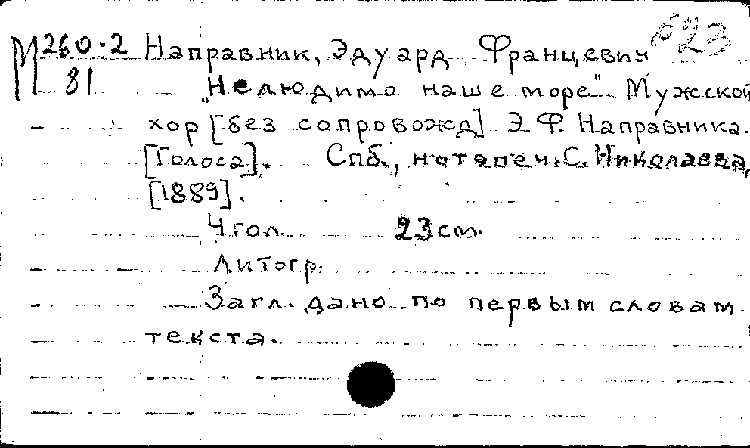 М260-2 Направник, Эдуард Францевич 523
81 „Нелюдимо наше море". Мужской
хор [без сопровожд] Э.Ф. Направника.
[Голоса]. Спб., нотопеч. С. Николаева,
[1889].
4 гол. 23 см.
Литогр.
Загл. дано по первым словам
текста.